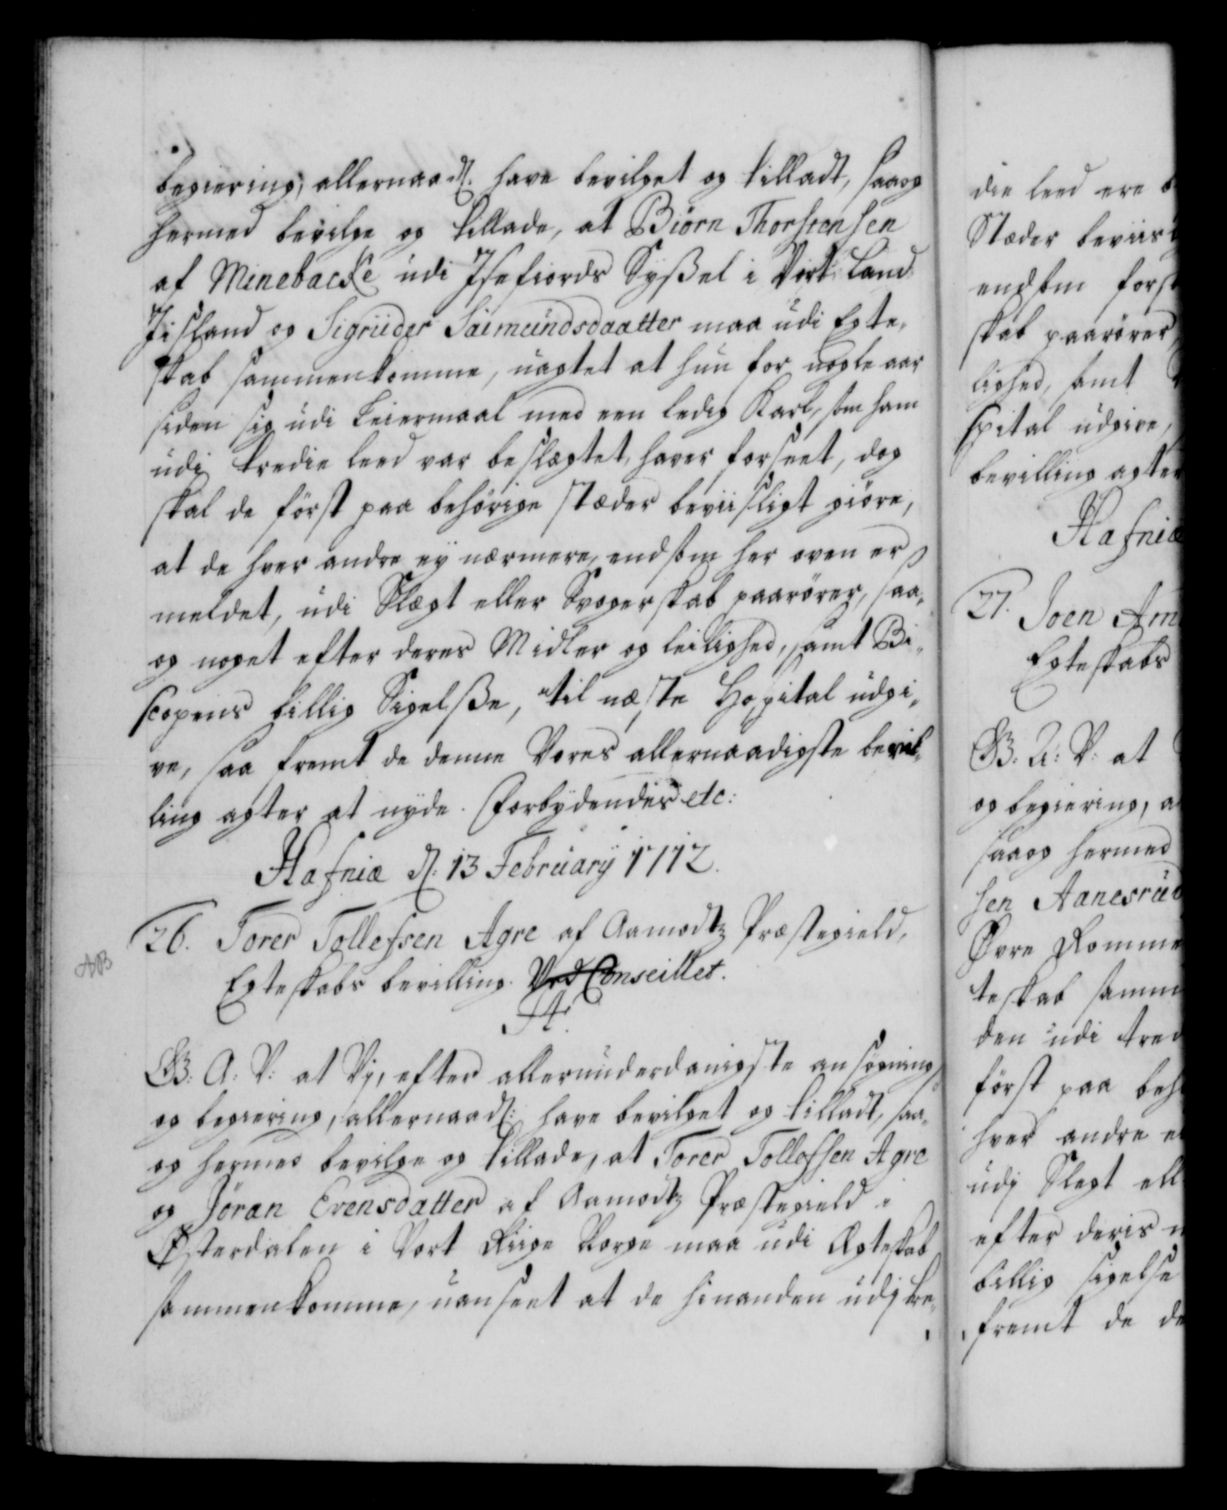 begiering, allernaads. have bevilget og tilladt, saa og
hermed bevilge og tillade, at Biörn Thorstensen
af Minebacke udi Isefiords Syßel i Vort Land
Iisland og Sigriider Sæimundsdaatter maa udi Egte,,
skab sammenkomme, uagtet at hun for nogle aar
siden sig udi Leiermaal med een ledig Karl, som ham
udi tredie leed var beslægtet, haver forseet, dog
skal de först paa behörige stæder beviisligt giöre,
at de hver andre ey nærmere, end som her oven er
meldet, udi Slægt eller Svogerskab paarörer, saa,,
og noget efter deres Midler og leilighed, samt Bi,,
scopens billig Sigelße, til næste Hospital udgi,,
ve, saa fremt de denne Vores allernaadigste bevil,,
ling agter at nyde. Forbydendes etc:
Hafniæ d. 13 February 1712.
26. Torer Tollefsen Agre af Aamodtz Præstegield,
AB
Egteskabs bevilling. Ved Conseillet.
St.
G: A: V: at Vj, efter allerunderdanigste ansögning
og begiering, allernaads: have bevilget og tilladt, saa,,
og hermed bevilge og tillade, at Torer Tollofsen Agre
og Jöran Evensdatter af Aamodtz Præstegield i
Østerdalen i Vort Riige Norge maa udi Ægteskab
sammenkomme, uanseet at de hinanden udj tre,,
die leed ere
Stæder beviis
end som forst
skab paarörer
lighed, samt
spital udgive,
bevilling agter
Hafniæ
27. Joen Am
Egteskabs
G: A: V: at
og begiering, a
saa og hermed
sen Aanesrud
Øvre Romme
teskab samm
den udi tred
först paa beh
hver andre e
udj Slegt ell
efter deris m
billig sigelse
fremt de de